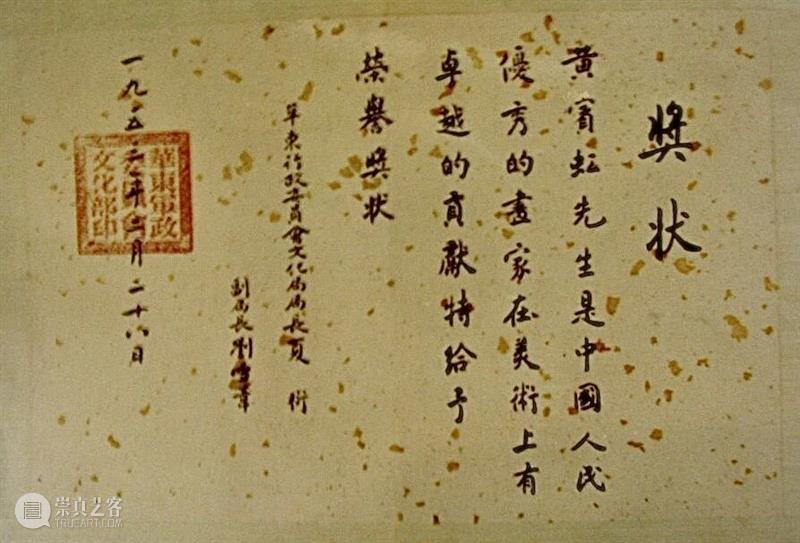 獎状
黄賓虹先生是中國人民
優秀的畫家在美術上有
卓越的貢獻特給予
榮譽獎状
華東行政委員會文化局局長夏衍
副局長劉雪葦
一九五三年二月二十八日
華東軍政
委員會
文化部印
崇真艺客
TRUEART.COM